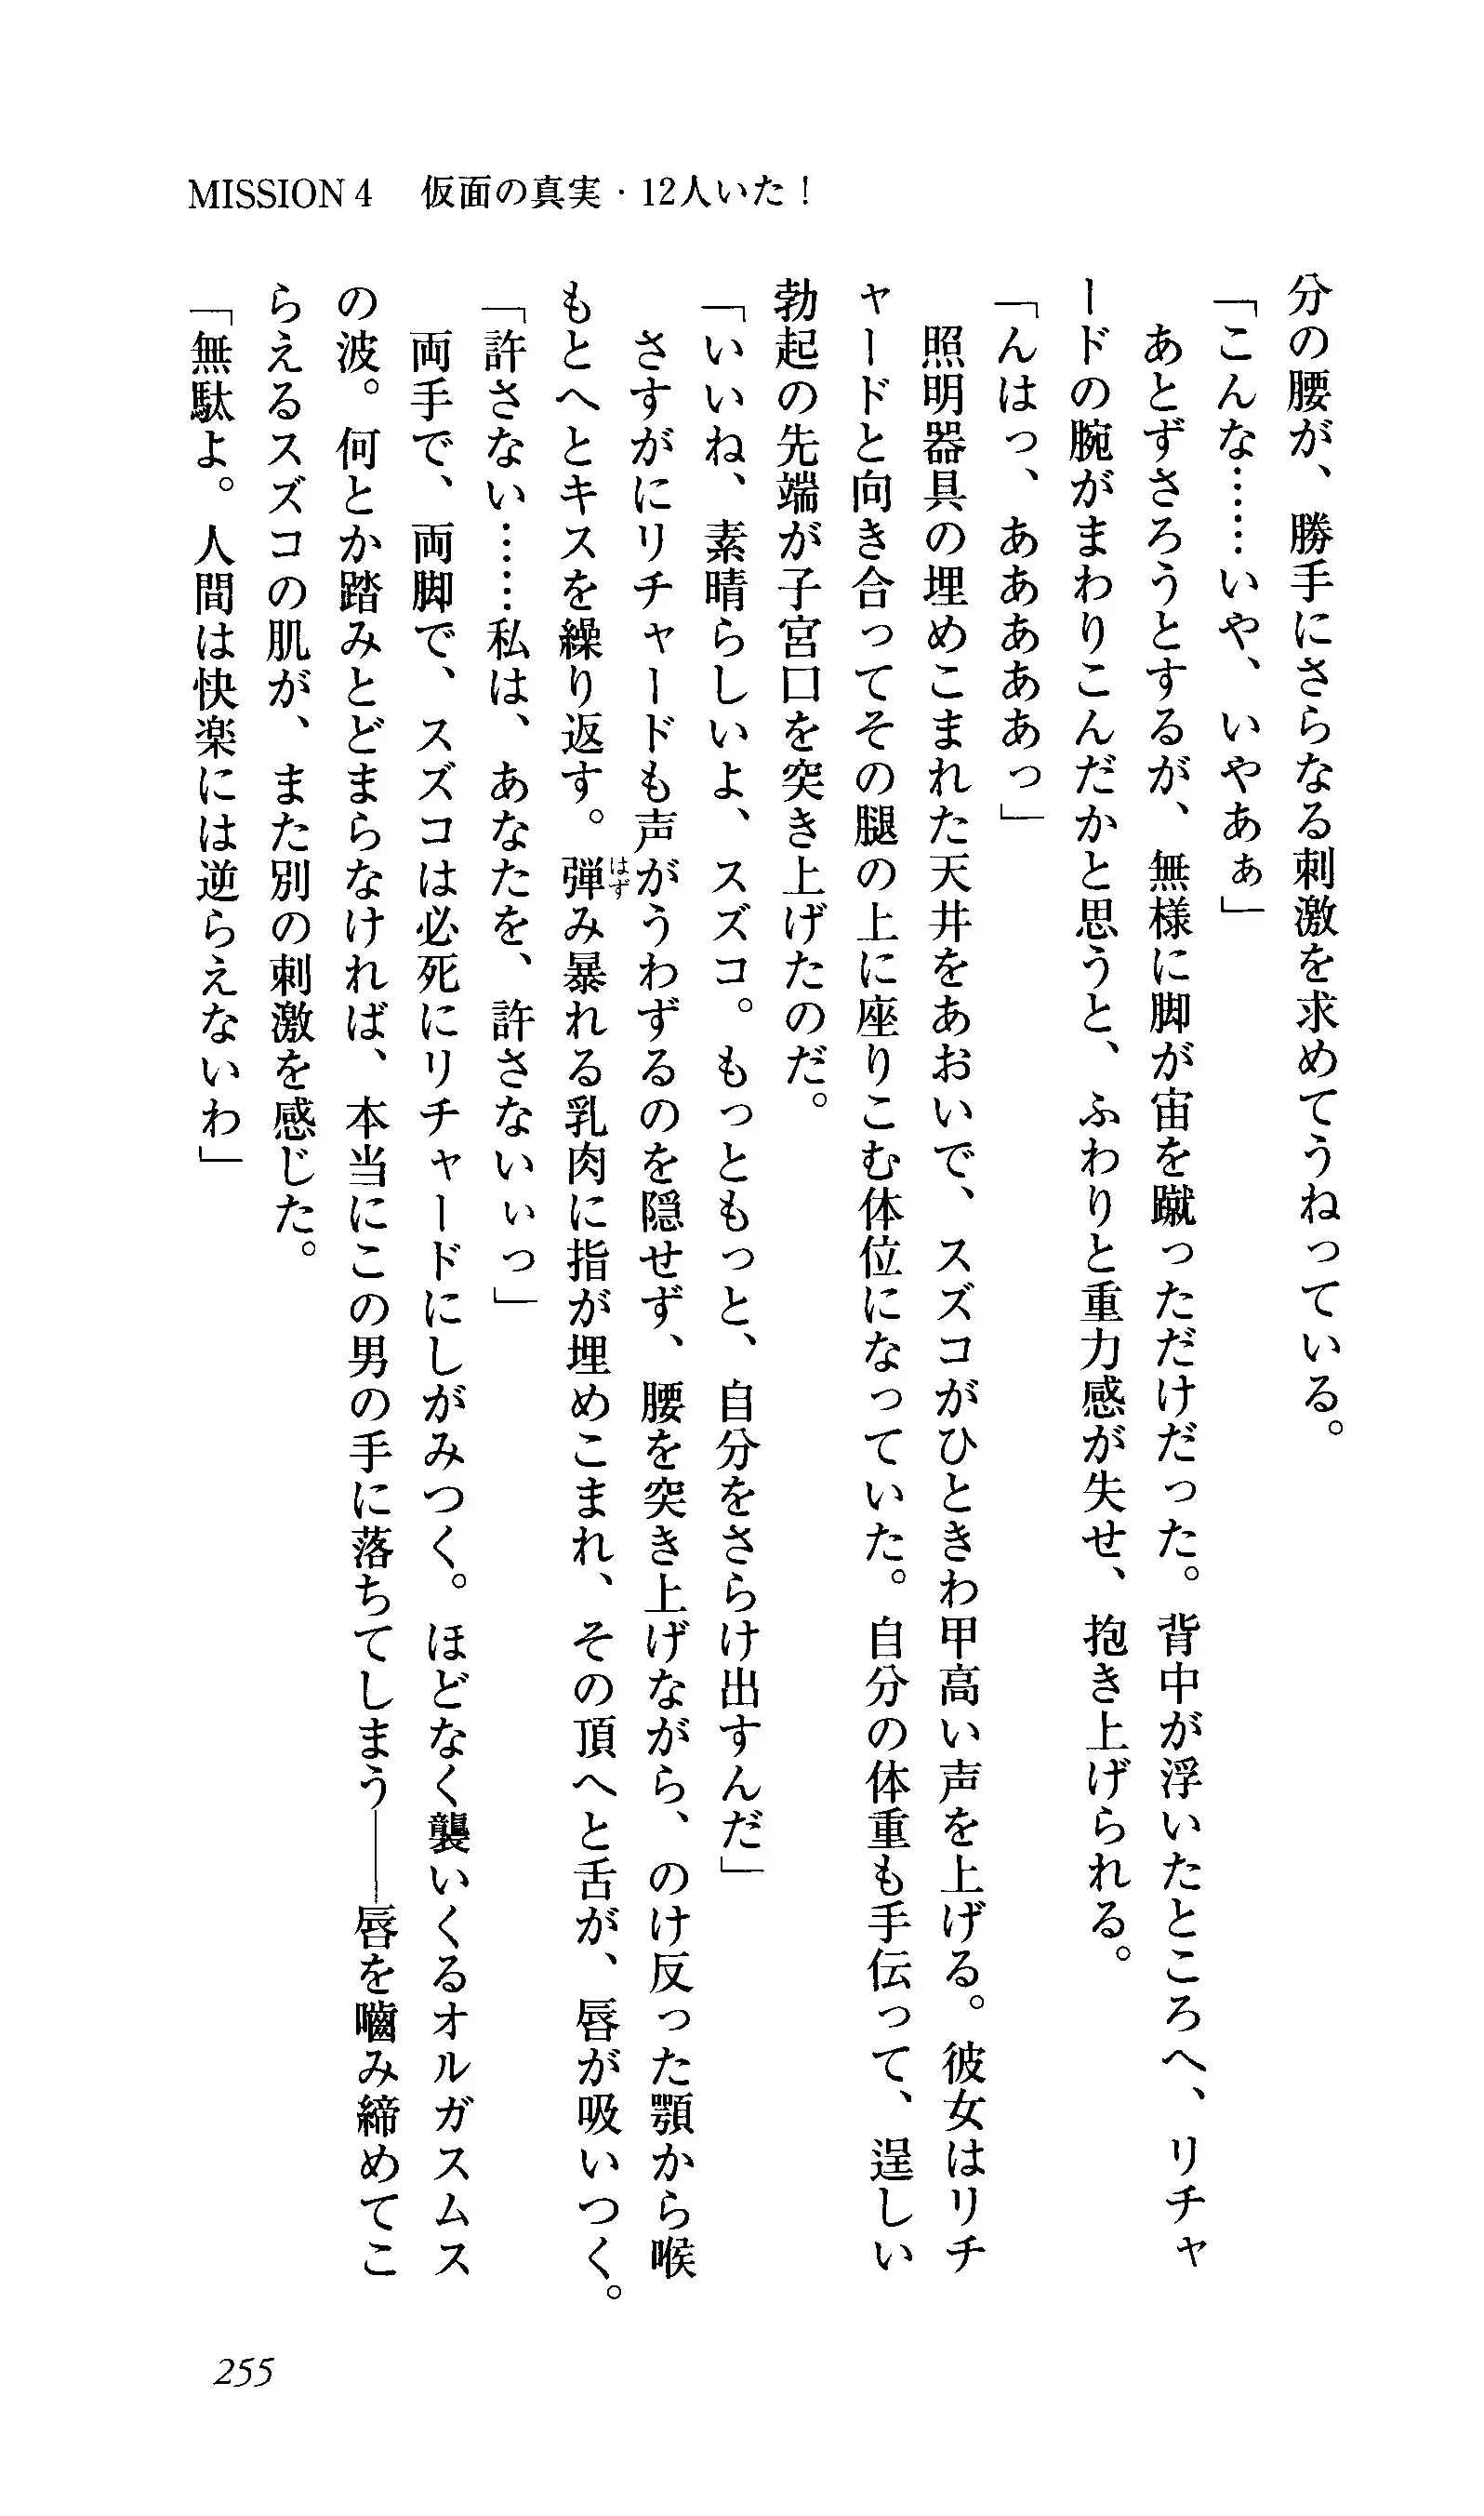 MISSION 4　仮面の真実・12人いた！
分の腰が、勝手にさらなる刺激を求めてうねっている。
「こんな……いや、いやあぁ」
　あとずさろうとするが、無様に脚が宙を蹴っただけだった。背中が浮いたところへ、リチャ
ードの腕がまわりこんだかと思うと、ふわりと重力感が失せ、抱き上げられる。
「んはっ、あああああっ」
　照明器具の埋めこまれた天井をあおいで、スズコがひときわ甲高い声を上げる。彼女はリチ
ャードと向き合ってその腿の上に座りこむ体位になっていた。自分の体重も手伝って、逞しい
勃起の先端が子宮口を突き上げたのだ。
「いいね、素晴らしいよ、スズコ。もっともっと、自分をさらけ出すんだ」
　さすがにリチャードも声がうわずるのを隠せず、腰を突き上げながら、のけ反った顎から喉
もとへとキスを繰り返す。弾み暴れる乳肉に指が埋めこまれ、その頂へと舌が、唇が吸いつく。
「許さない……私は、あなたを、許さないぃっ」
　両手で、両脚で、スズコは必死にリチャードにしがみつく。ほどなく襲いくるオルガスムス
の波。何とか踏みとどまらなければ、本当にこの男の手に落ちてしまう――唇を嚙み締めてこ
らえるスズコの肌が、また別の刺激を感じた。
「無駄よ。人間は快楽には逆らえないわ」
255